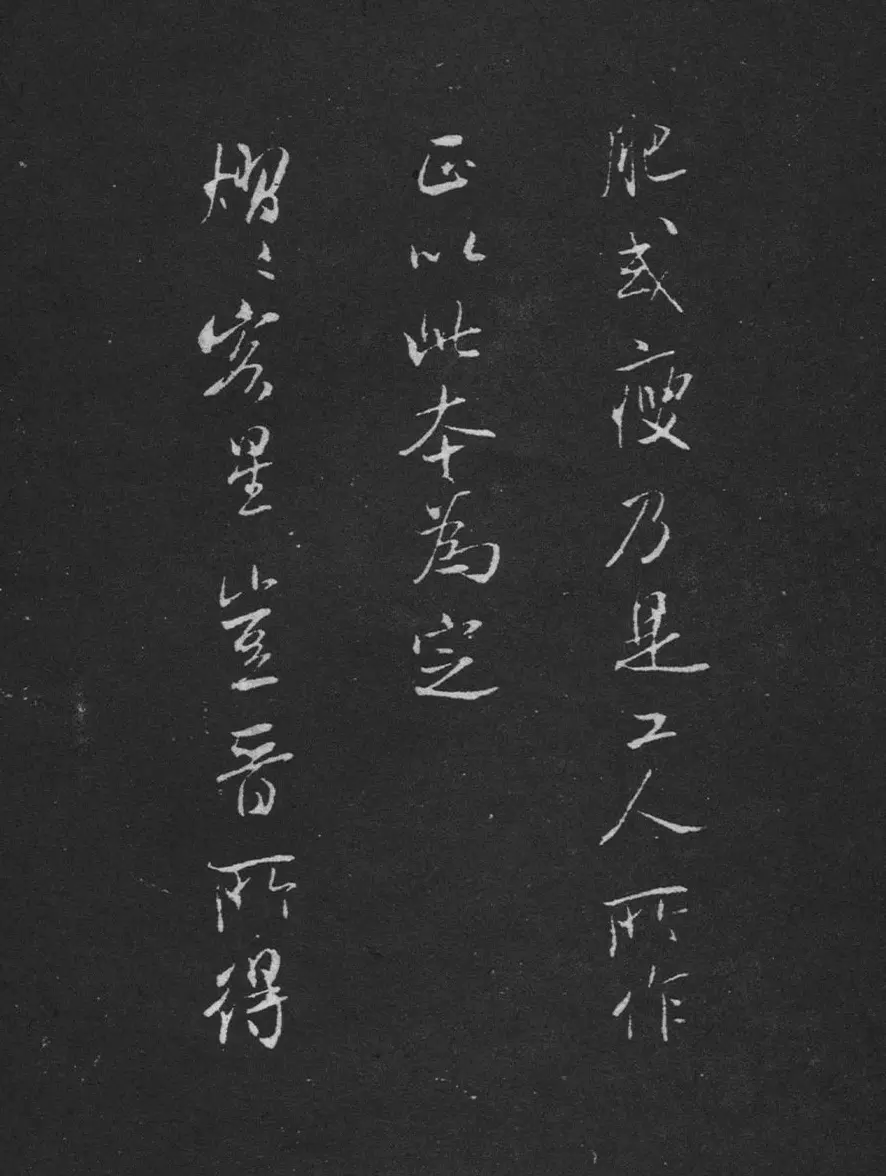 肥或瘦乃是工人所作
正以此本為定
熠〻客星豈晉所得